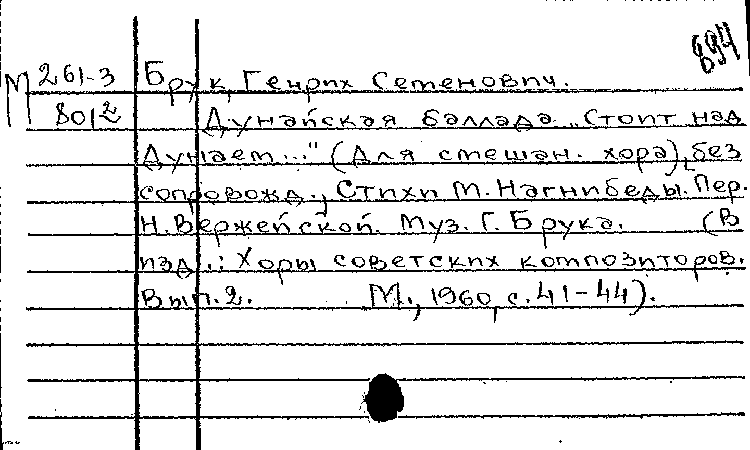 894
М 261-3 Брук, Генрих Семенович.
80/2 Дунайская баллада. „Стоит над
Дунаем..." (Для смешан. хора), без
сопровожд., Стихи М. Нагнибеды. Пер.
Н. Вержейской. Муз. Г. Брука. (В
изд.: Хоры советских композиторов.
Вып. 2. М., 1960, с. 41-44).